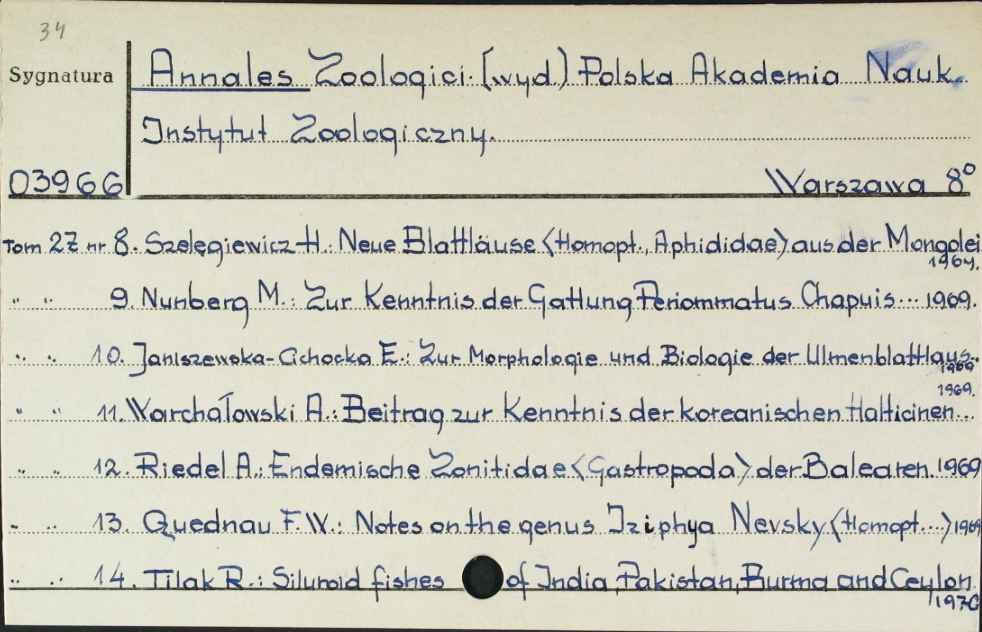 34
Sygnatura
Annales Zoologici. (wyd.) Polska Akademia Nauk.
Instytut Zoologiczny.
03966
Warszawa 8°
Tom 27 nr 8. Szelęgiewicz H.: Neue Blattläuse <Homopt., Aphididae> aus der Mongolei
1969.
" " 9. Nunberg M.: Zur Kenntnis der Gattung Periommatus Chapuis... 1969.
" " 10. Janiszewska-Cichocka E.: Zur Morphologie und Biologie der Ulmenblattlaus..
1969
1969.
" " 11. Warchałowski A.: Beitrag zur Kenntnis der koreanischen Halticinen...
" " 12. Riedel A.: Endemische Zonitidae <Gastropoda> der Balearen. 1969
" " 13. Quednau F.W.: Notes on the genus Iziphya Nevsky <Homopt...> 1969
" " 14. Tilak R.: Siluroid fishes of India, Pakistan, Burma and Ceylon.
1970